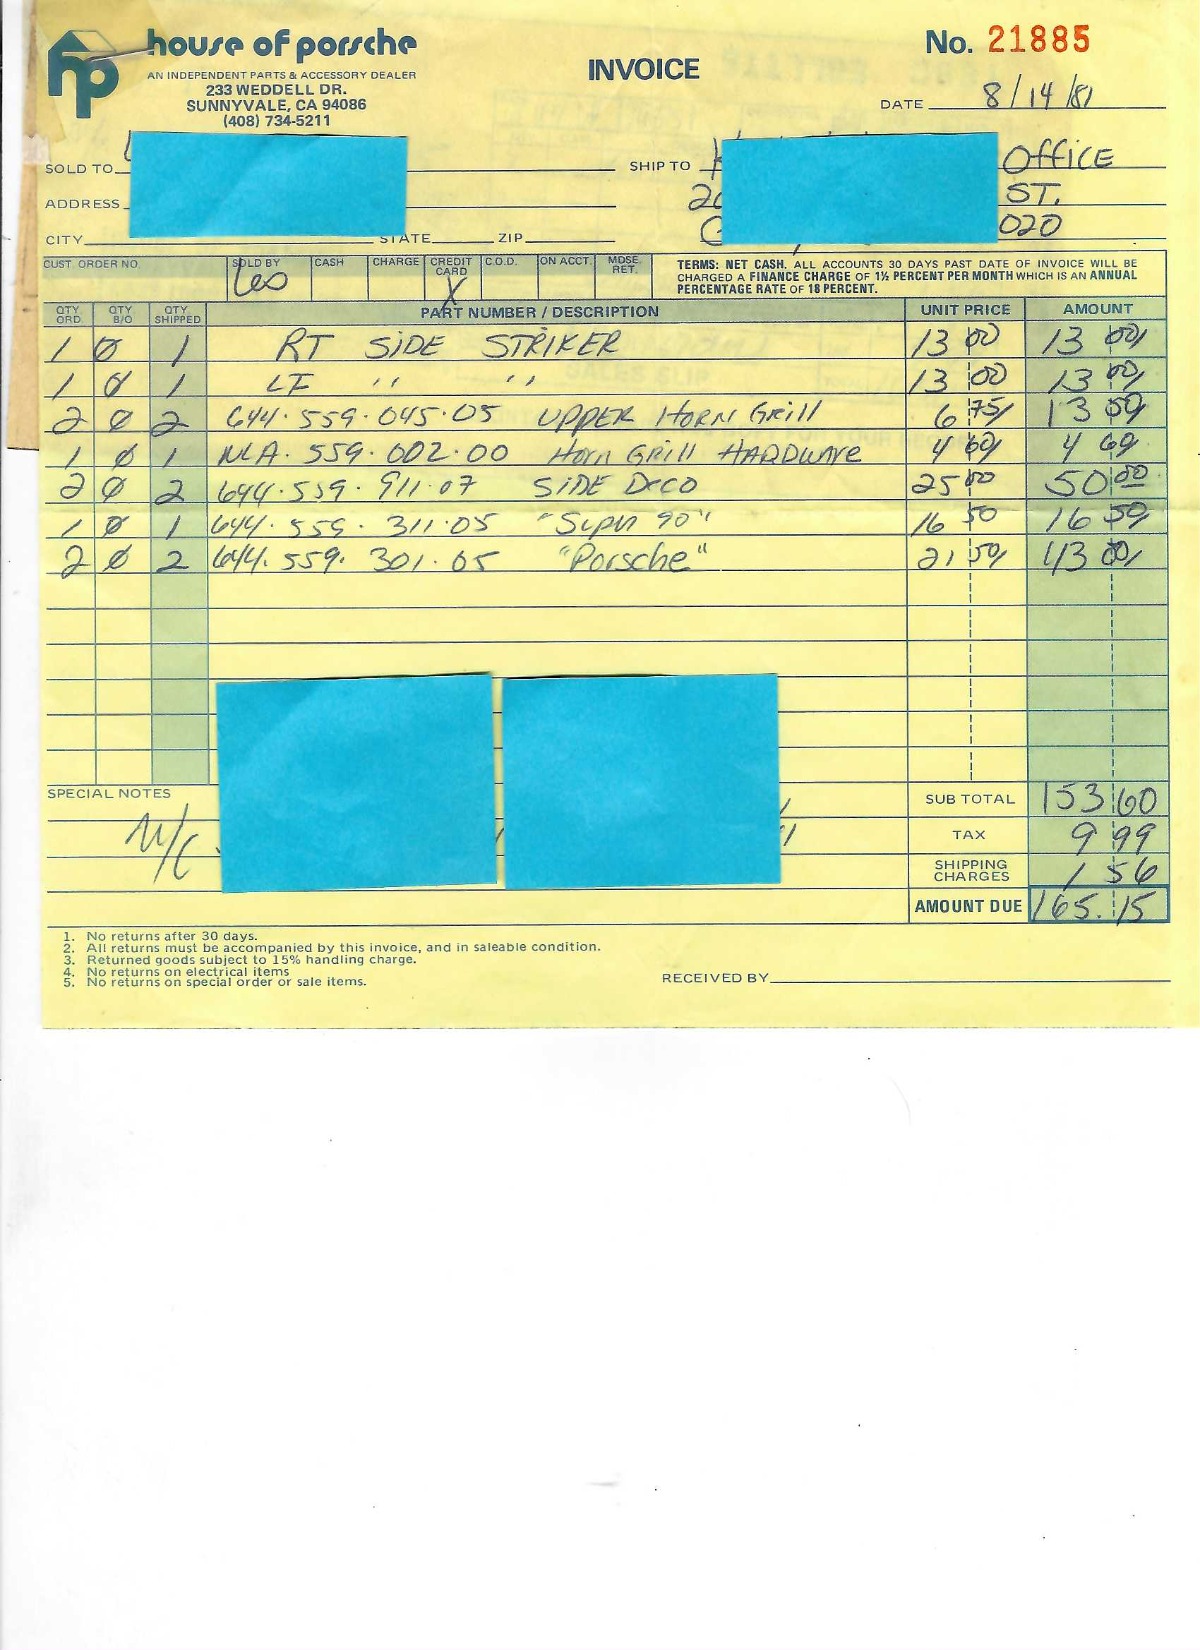 hp house of porsche
AN INDEPENDENT PARTS & ACCESSORY DEALER
233 WEDDELL DR.
SUNNYVALE, CA 94086
(408) 734-5211
INVOICE
No. 21885
DATE 8/14/81
SOLD TO
SHIP TO Office
ADDRESS ST.
CITY STATE ZIP 020
CUST. ORDER NO. SOLD BY Leo CASH CHARGE CREDIT CARD X C.O.D. ON ACCT. MDSE. RET.
TERMS: NET CASH, ALL ACCOUNTS 30 DAYS PAST DATE OF INVOICE WILL BE
CHARGED A FINANCE CHARGE OF 1½ PERCENT PER MONTH WHICH IS AN ANNUAL
PERCENTAGE RATE OF 18 PERCENT.
QTY. ORD. QTY. B/O QTY. SHIPPED PART NUMBER / DESCRIPTION UNIT PRICE AMOUNT
1 Ø 1 RT SIDE STRIKER 13 00 13 00
1 Ø 1 LF " " 13 00 13 00
2 Ø 2 644.559.045.05 UPPER HORN Grill 6 75 13 50
1 Ø 1 NLA.559.002.00 Horn Grill HARDWARE 4 60 4 60
2 Ø 2 644.559.911.07 SIDE DECO 25 00 50 00
1 Ø 1 644.559.311.05 "Super 90" 16 50 16 50
2 Ø 2 644.559.301.05 "Porsche" 21 50 43 00
SPECIAL NOTES
M/C
SUB TOTAL 153 60
TAX 9 99
SHIPPING CHARGES 1 56
AMOUNT DUE 165.15
1. No returns after 30 days.
2. All returns must be accompanied by this invoice, and in saleable condition.
3. Returned goods subject to 15% handling charge.
4. No returns on electrical items
5. No returns on special order or sale items.
RECEIVED BY